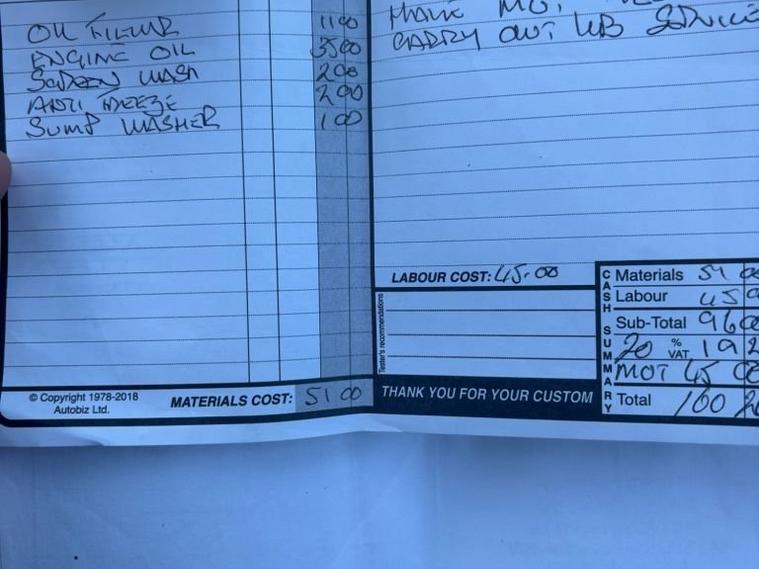 OIL FILTER 11 00
ENGINE OIL 35 00
SCREEN WASH 2 00
ANTI FREEZE 2 00
SUMP WASHER 1 00
© Copyright 1978-2018
Autobiz Ltd.
MATERIALS COST: 51 00
MOT
CARRY OUT SERVICE
LABOUR COST: 45.00
Tester's recommendations
THANK YOU FOR YOUR CUSTOM
CASH SUMMARY
Materials 51 00
Labour 45 0
Sub-Total 96 00
20 % VAT 19 2
MOT 45 00
Total 160 20